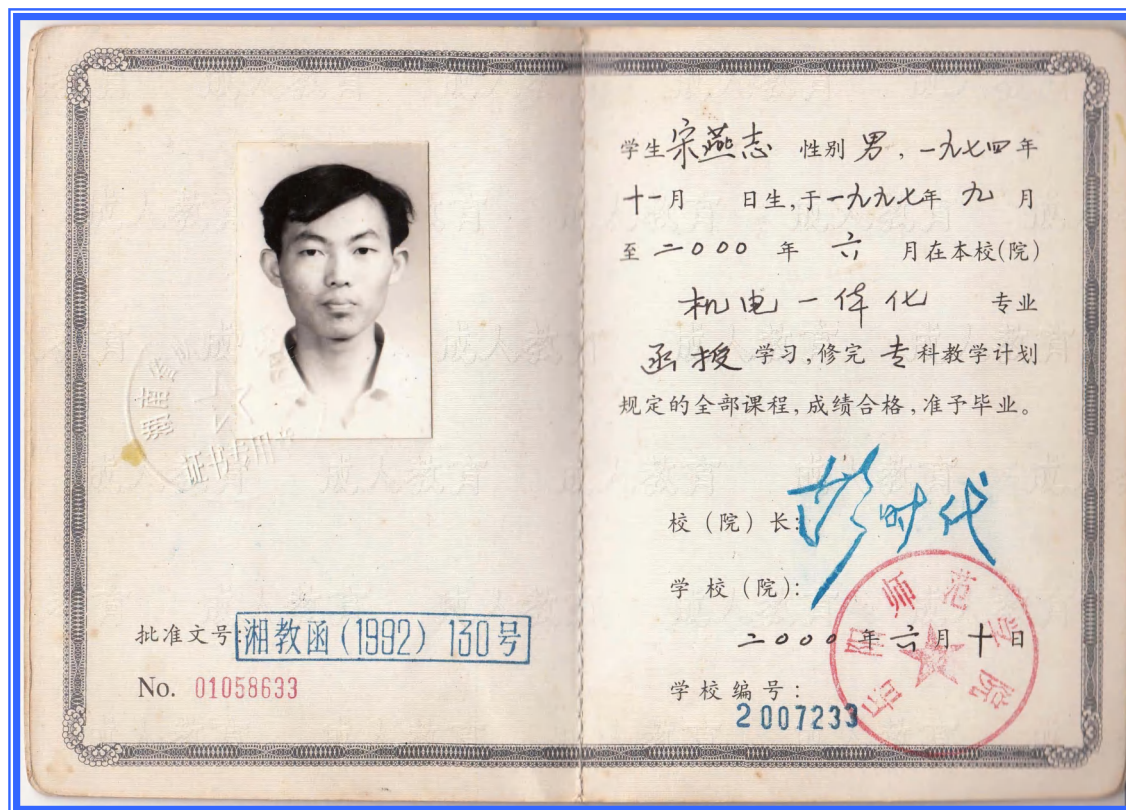 证书专用
批准文号:湘教函(1992)130号
No. 01058633
学生宋燕志 性别男,一九七四年
十一月 日生,于一九九七年九月
至二000年六月在本校(院)
机电一体化 专业
函授学习,修完专科教学计划
规定的全部课程,成绩合格,准予毕业。
校(院)长:彭时代
学校(院):
二000年六月十日
阳师范学院
学校编号:
2007233
成人教育